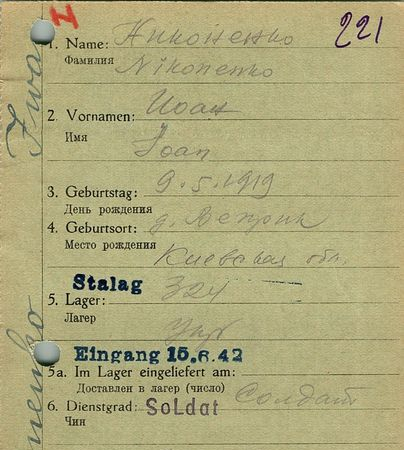 N 221
1. Name: Никоненко
Фамилия Nikonenko
2. Vornamen: Иоан
Имя Joan
3. Geburtstag: 9.5.1919
День рождения
4. Geburtsort: д. Веприк
Место рождения
Киевская обл.
Stalag 324
5. Lager:
Лагер
Eingang 15.6.42
5a. Im Lager eingeliefert am:
Доставлен в лагер (число)
6. Dienstgrad: Soldat Солдат
Чин